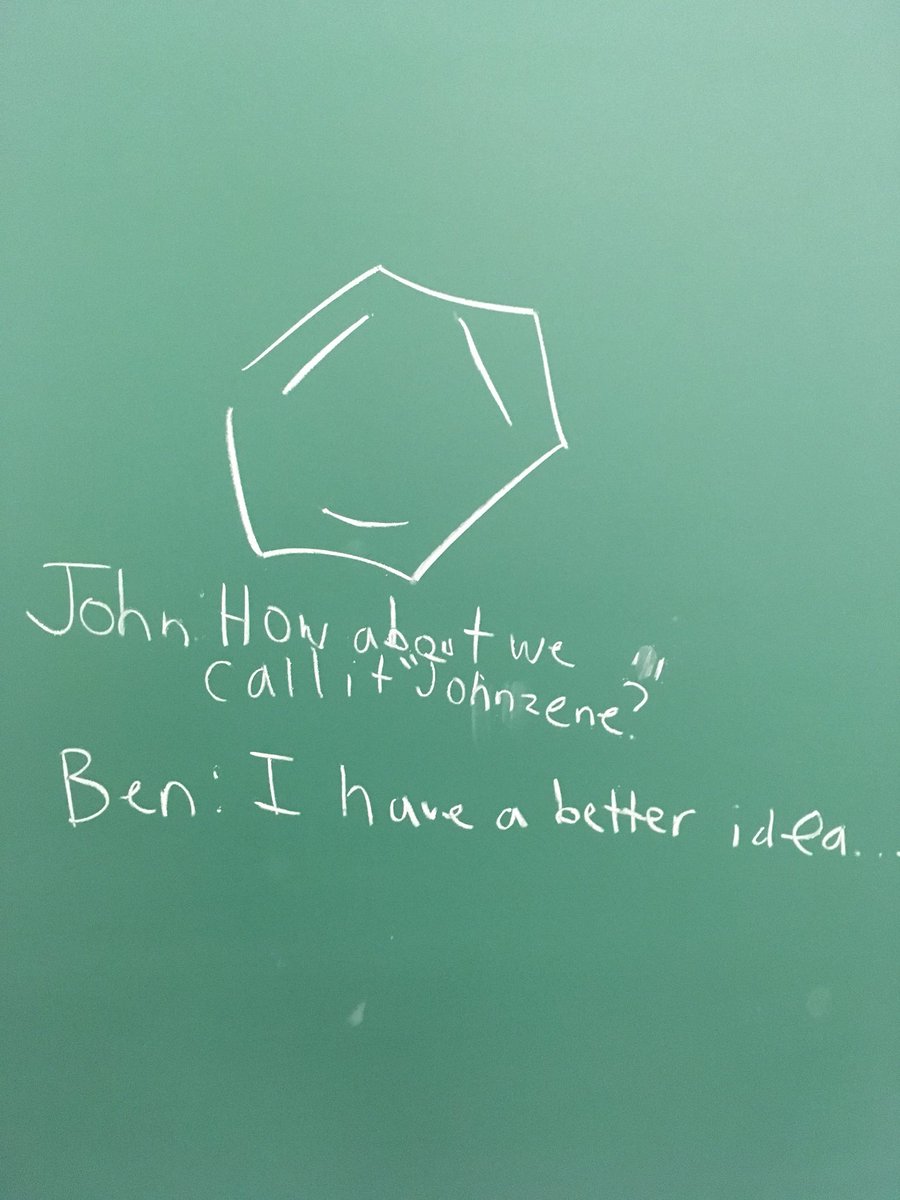 John: How about we
call it "Johnzene?"
Ben: I have a better idea...